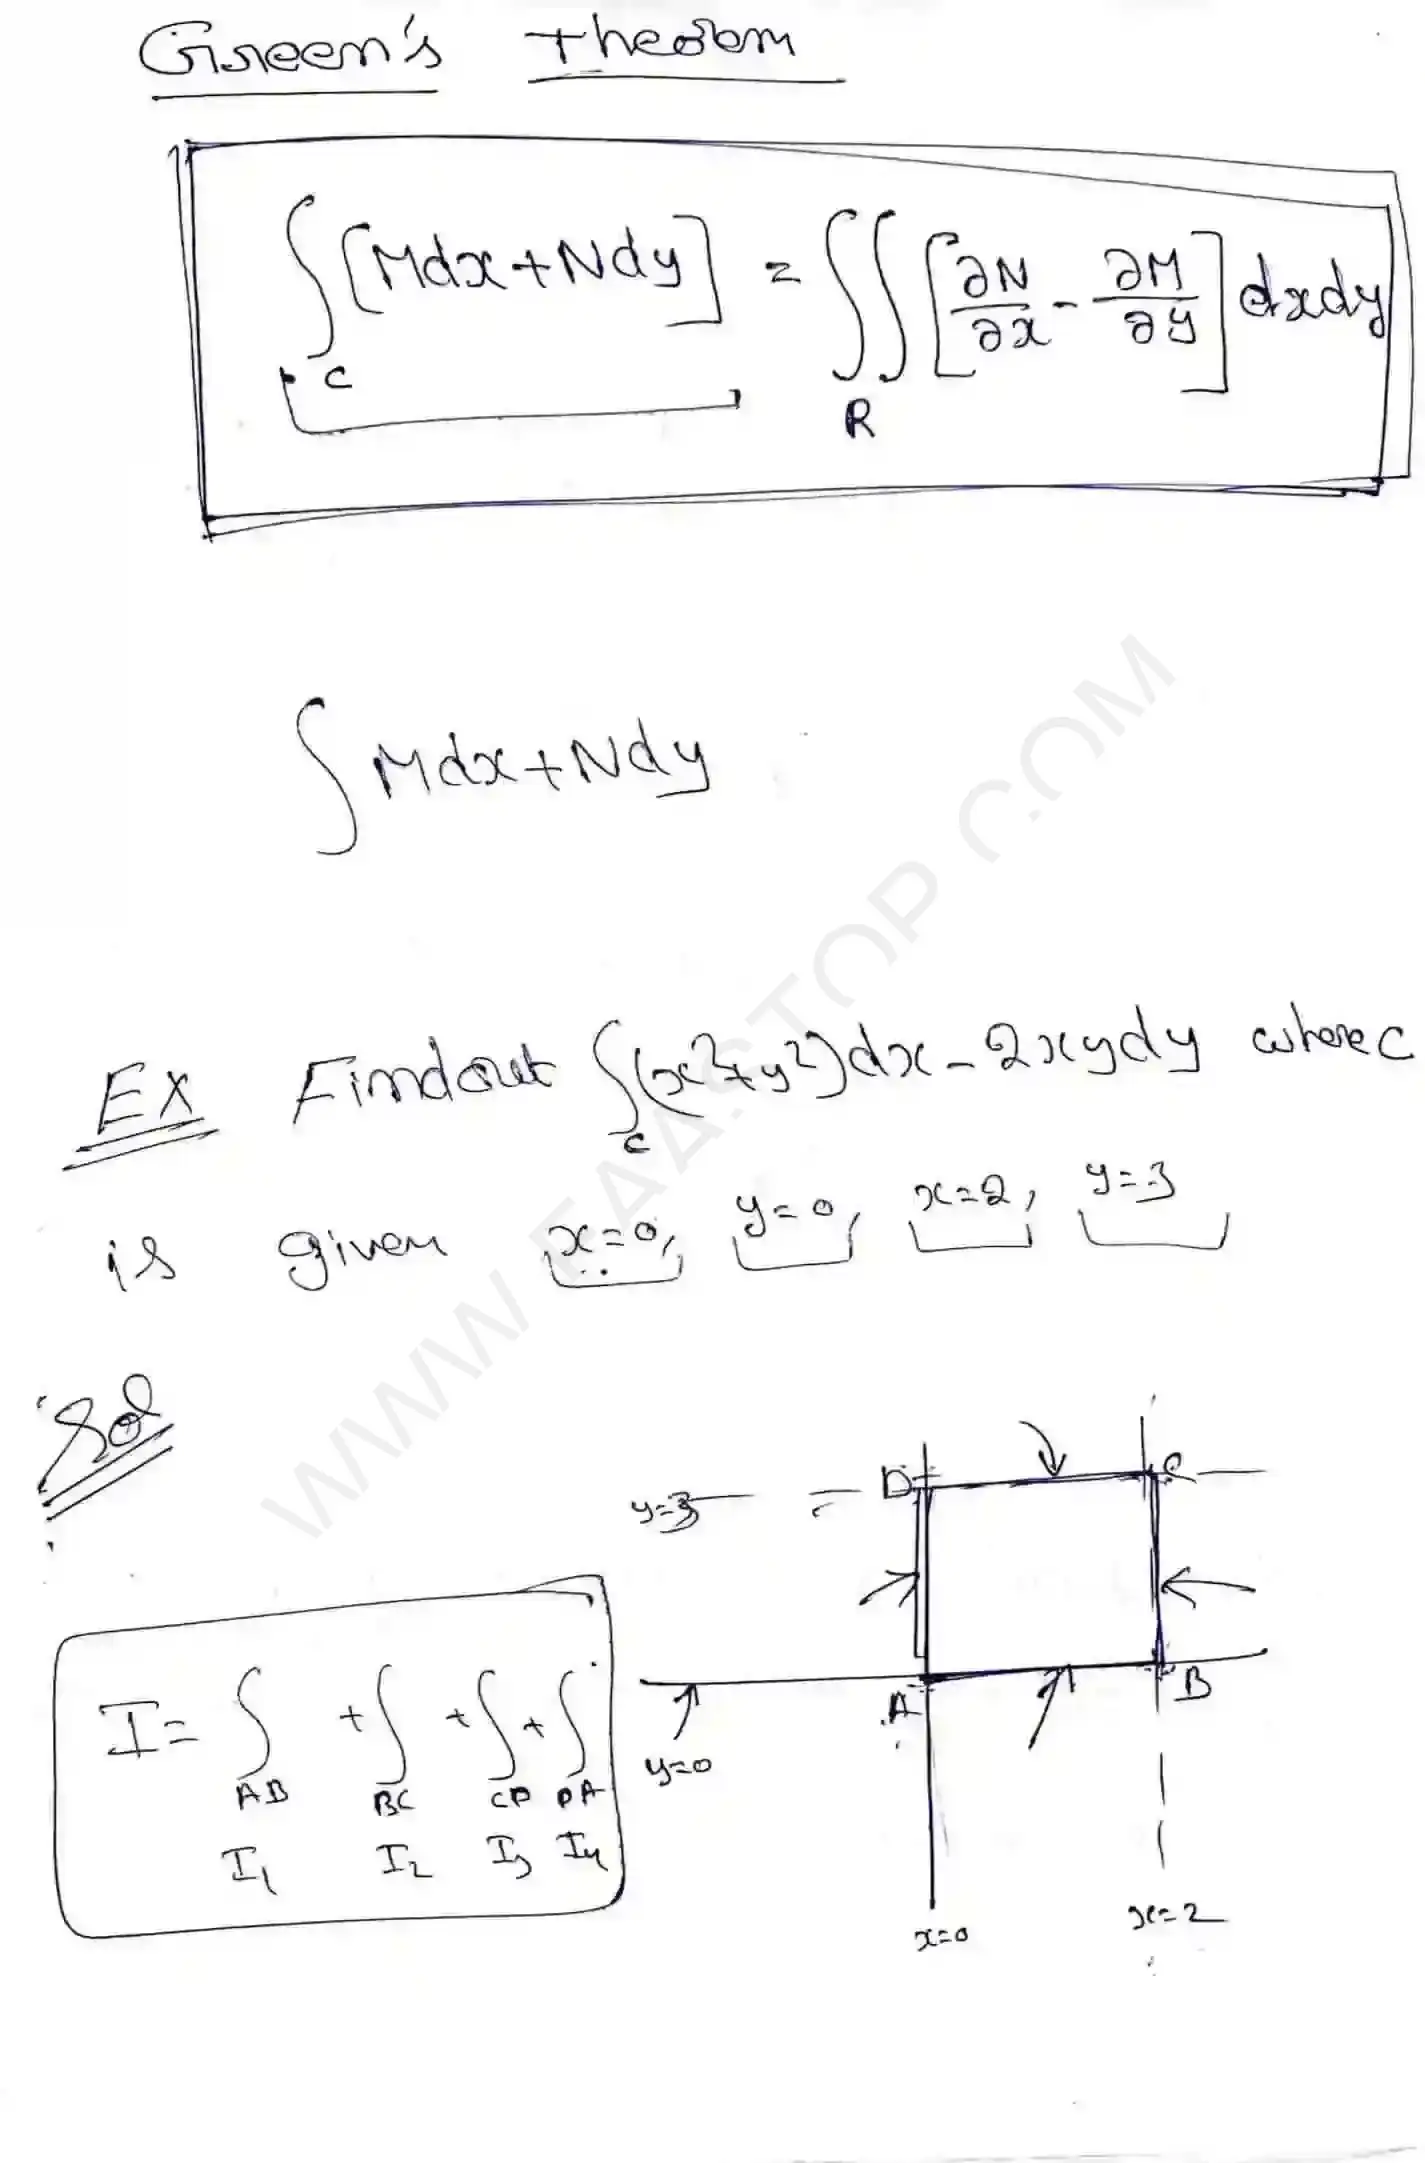 Green's Theorem
∫_C [Mdx+Ndy] = ∬_R [∂N/∂x - ∂M/∂y] dxdy
∫ Mdx+Ndy
Ex Findout ∫_C (x²+y²)dx - 2xydy where C
is given x=0, y=0, x=2, y=3
Sol
D C
y=3
A B
y=0
I = ∫_AB + ∫_BC + ∫_CD + ∫_DA
I₁ I₂ I₃ I₄
x=0 x=2
WWW.FAASTOP.COM